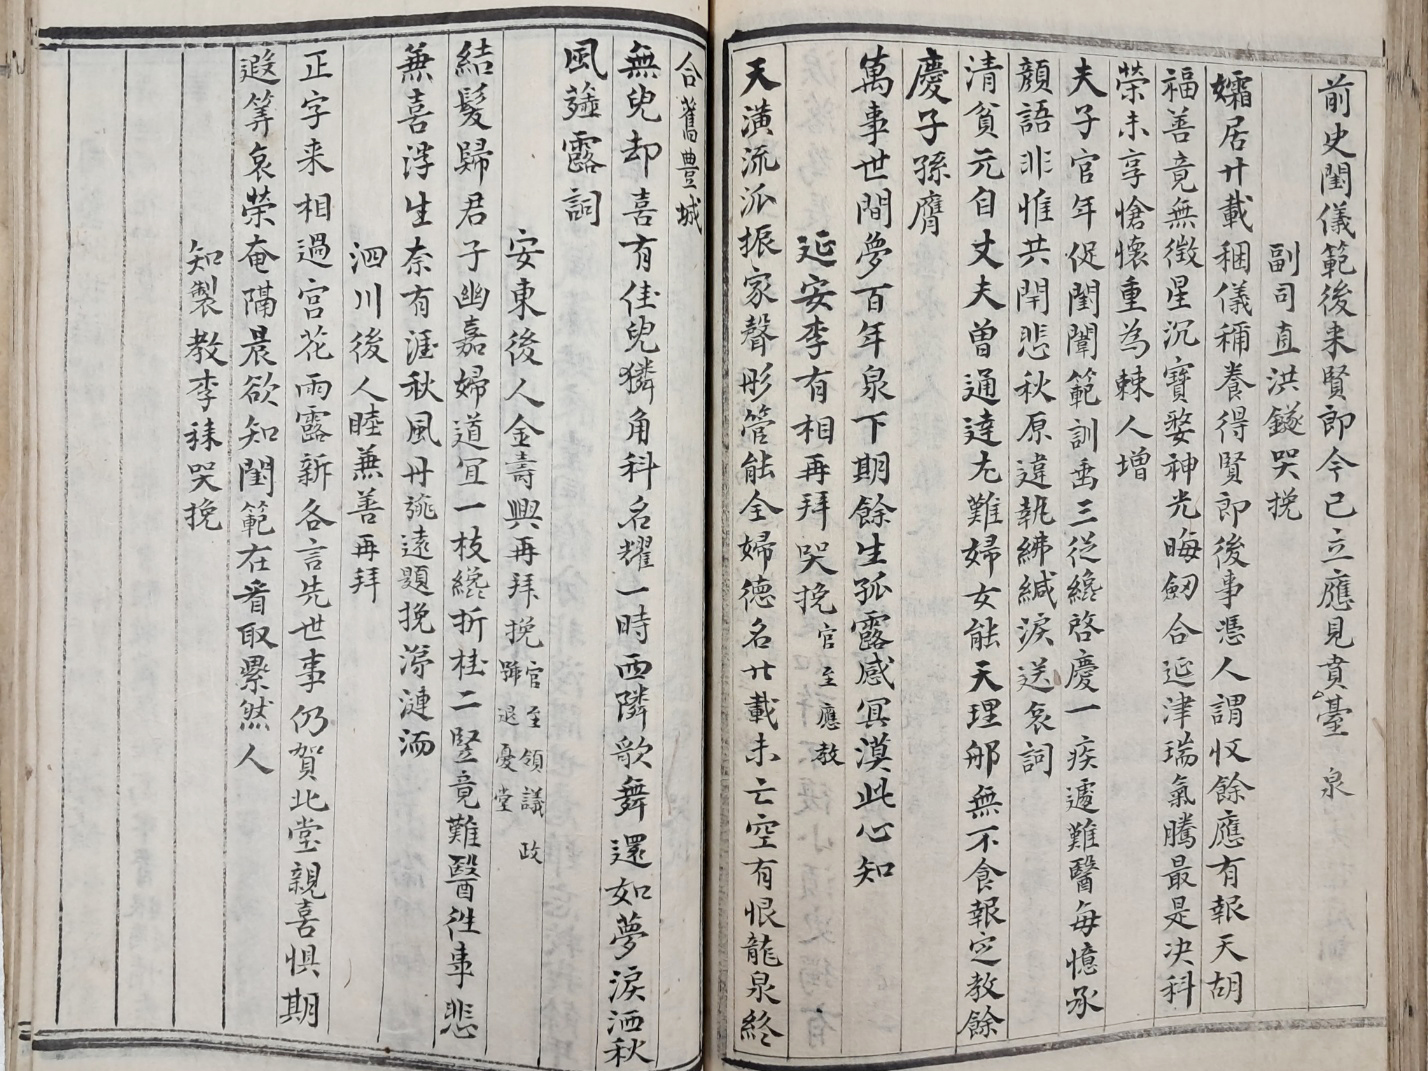 前史閨儀範後来賢即今已立應見賁臺泉
副司直洪鐩哭挽
孀居廿載稇儀稱養得賢郎後事憑人謂収餘應有報天胡
福善竟無徴星沉寶婺神光晦劒合延津瑞氣騰最是决科
荣未享愴懷重為棘人增
夫子官年促閨闈範訓垂三従纔啓慶一疾遽難醫每憶承
顔語非惟共閈悲秋原違執紼緘淚送哀詞
清貧元自丈夫曽通達尤難婦女能天理那無不食報定教餘
慶子孫膺
延安李有相再拜哭挽官至應教
萬事世間夢百年泉下期餘生孤露感冥漠此心知
天潢流派振家聲彤管能全婦德名廿載未亡空有恨龍泉終
合舊豊城
無兒却喜有佳兒獜角科名耀一時西隣歌舞還如夢淚洒秋
風薤露詞
安東後人金壽興再拜挽官至領議政號退憂堂
結髮歸君子幽嘉婦道宜一枝纔折桂二竪竟難醫徃事悲
兼喜浮生奈有涯秋風丹旐遠題挽涕漣洏
泗川後人睦兼善再拜
正字来相過宫花雨露新各言先世事仍賀北堂親喜惧期
遐筭哀荣奄隔晨欲知閨範在看取纍然人
知製教李秣哭挽